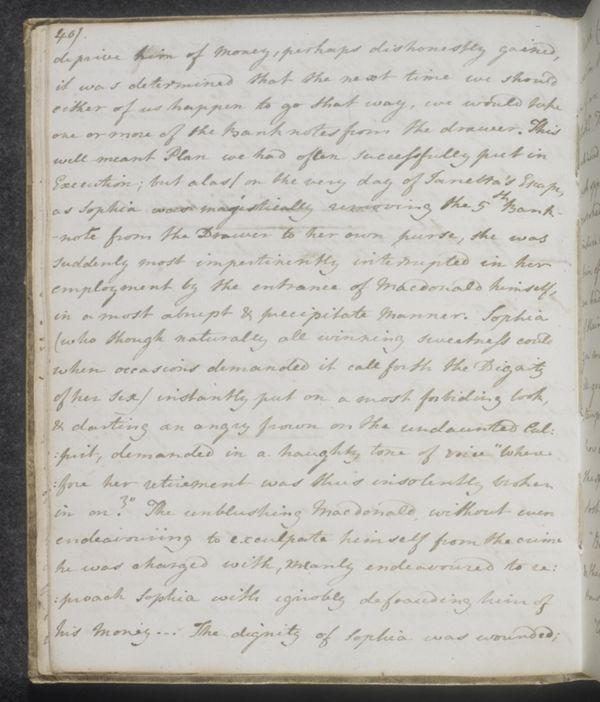 40/.
deprive him of Money, perhaps dishonestly gained,
it was determined that the next time we should
either of us happen to go that way, we would take
one or more of the Bank notes from the drawer. This
well meant Plan we had often successfully put in
Execution; but alas! on the very day of Janetta's Escape,
as Sophia was majestically removing the 5th Bank-
-note from the Drawer to her own purse, she was
suddenly most impertinently interrupted in her
employment by the entrance of Macdonald himself,
in a most abrupt & precipitate Manner. Sophia
(who though naturally all winning sweetness could
when occasions demanded it call forth the Dignity
of her sex) instantly put on a most forbiding look,
& darting an angry frown on the undaunted Cul-
:prit, demanded in a haughty tone of voice "Where
:fore her retirement was thus insolently broken
in on?" The unblushing Macdonald, without even
endeavouring to exculpate himself from the crime
he was charged with, meanly endeavoured to re:
:proach Sophia with ignobly defrauding him of
his Money... The dignity of Sophia was wounded;